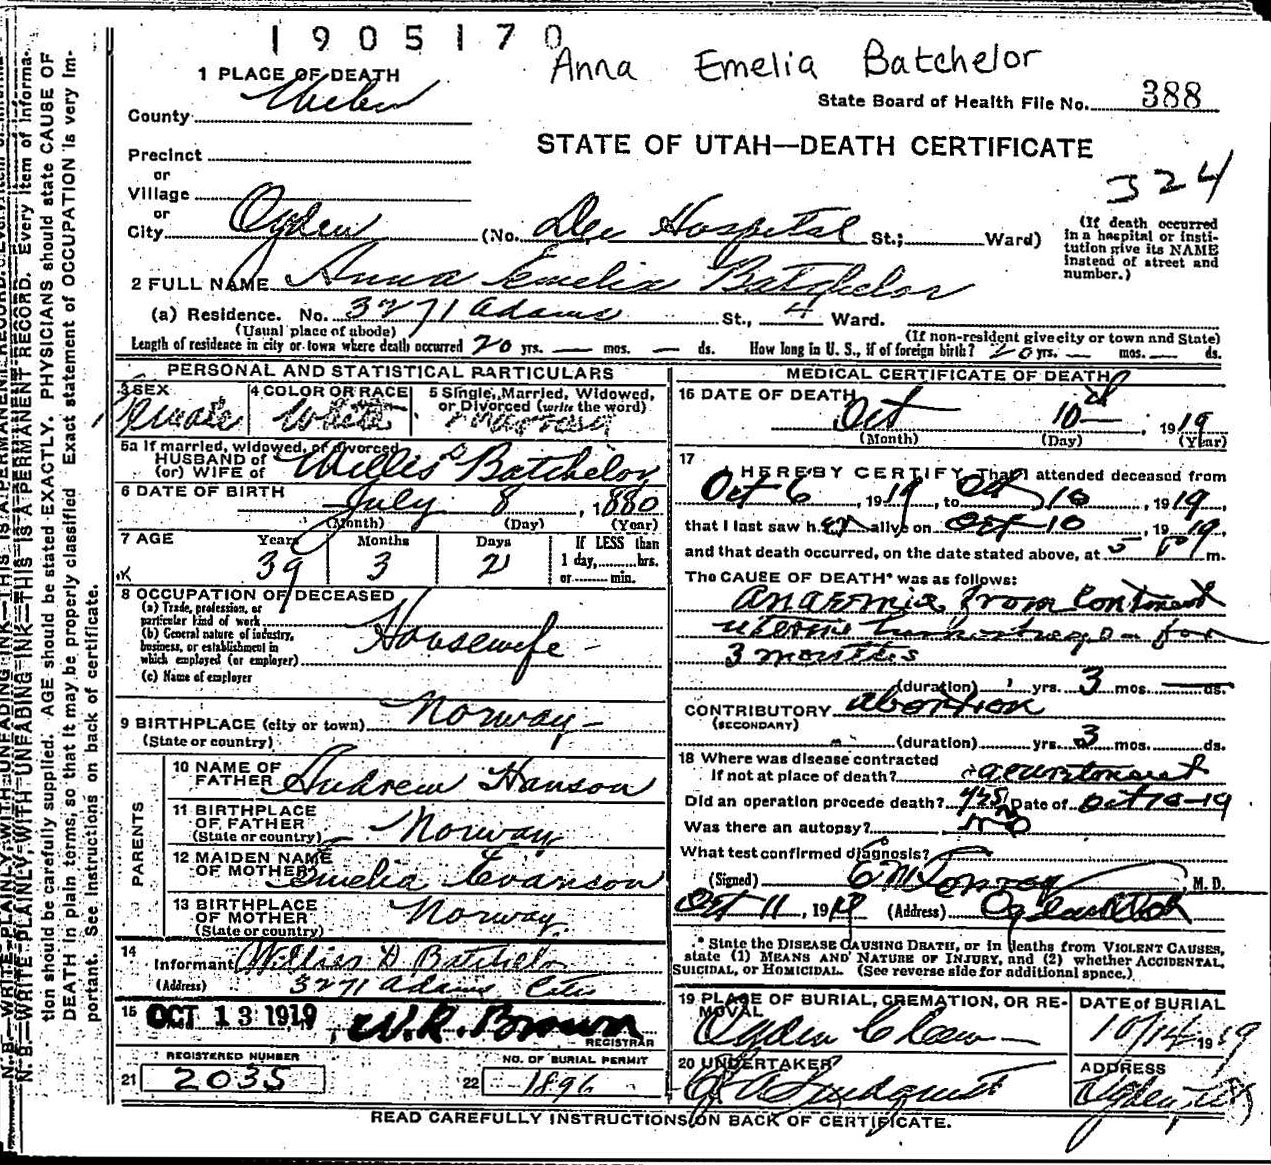 1905170
Anna Emelia Batchelor
1 PLACE OF DEATH
State Board of Health File No. 388
County Weber
STATE OF UTAH—DEATH CERTIFICATE
Precinct
or
Village
324
or
City Ogden (No. Dee Hospital St.; Ward)
(If death occurred in a hospital or institution give its NAME instead of street and number.)
2 FULL NAME Anna Emelia Batchelor
(a) Residence. No. 3271 Adams St., 4 Ward.
(Usual place of abode) (If non-resident give city or town and State)
Length of residence in city or town where death occurred 20 yrs. — mos. — ds. How long in U. S., if of foreign birth? 20 yrs. — mos. — ds.
PERSONAL AND STATISTICAL PARTICULARS
3 SEX Female
4 COLOR OR RACE White
5 Single, Married, Widowed, or Divorced (write the word) Married
5a If married, widowed, or divorced
HUSBAND of
(or) WIFE of Willis Batchelor
6 DATE OF BIRTH July 8, 1880
(Month) (Day) (Year)
7 AGE Years Months Days If LESS than
39 3 2 1 day, hrs.
or min.
8 OCCUPATION OF DECEASED
(a) Trade, profession, or
particular kind of work
(b) General nature of industry,
business, or establishment in
which employed (or employer)
Housewife
(c) Name of employer
9 BIRTHPLACE (city or town) Norway
(State or country)
PARENTS
10 NAME OF FATHER Andrew Hanson
11 BIRTHPLACE OF FATHER (State or country) Norway
12 MAIDEN NAME OF MOTHER Emelia Evanson
13 BIRTHPLACE OF MOTHER (State or country) Norway
14 Informant Willis D Batchelor
(Address) 3271 Adams City
15 OCT 13 1919 W.R. Brown
REGISTRAR
REGISTERED NUMBER
21 2035
NO. OF BURIAL PERMIT
22 1896
MEDICAL CERTIFICATE OF DEATH
16 DATE OF DEATH
Oct 10, 1919
(Month) (Day) (Year)
17 I HEREBY CERTIFY, That I attended deceased from
Oct 6, 1919, to Oct 10, 1919,
that I last saw her alive on Oct 10, 1919
and that death occurred, on the date stated above, at 5 P m.
The CAUSE OF DEATH* was as follows:
Anaemia from
uterine for
3 months
(duration) yrs. 3 mos. ds.
CONTRIBUTORY abortion
(SECONDARY)
(duration) yrs. 3 mos. ds.
18 Where was disease contracted
if not at place of death?
Did an operation precede death? yes Date of Oct 10-19
Was there an autopsy? no
What test confirmed diagnosis?
(Signed) E M Conroy, M. D.
Oct 11, 1919 (Address) Ogden Utah
* State the DISEASE CAUSING DEATH, or in deaths from VIOLENT CAUSES,
state (1) MEANS AND NATURE OF INJURY, and (2) whether ACCIDENTAL,
SUICIDAL, or HOMICIDAL. (See reverse side for additional space.)
19 PLACE OF BURIAL, CREMATION, OR REMOVAL
Ogden
DATE of BURIAL
10/14 1919
20 UNDERTAKER
Lindquist
ADDRESS
Ogden, Ut
READ CAREFULLY INSTRUCTIONS ON BACK OF CERTIFICATE.
N. B.—WRITE PLAINLY, WITH UNFADING INK—THIS IS A PERMANENT RECORD. Every item of information should be carefully supplied. AGE should be stated EXACTLY. PHYSICIANS should state CAUSE OF DEATH in plain terms, so that it may be properly classified. Exact statement of OCCUPATION is very important. See instructions on back of certificate.